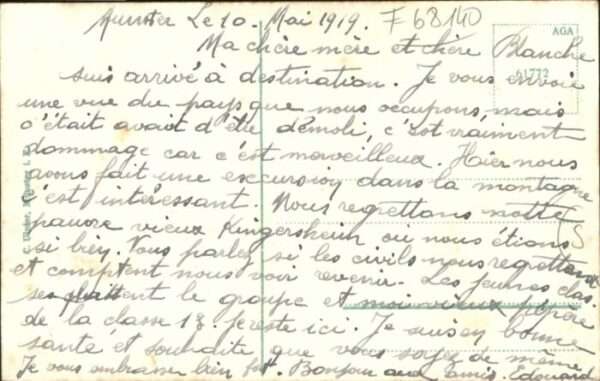 Munster Le 10. Mai 1919. F 68140
Ma chère mère et chère Blanche
AGA
61772
suis arrivé à destination. Je vous envoie
une vue du pays que nous occupons, mais
c'était avait d'être démoli, c'est vraiment
dommage car c'est merveilleux. Hier nous
avons fait une excursion dans la montagne
c'est intéressant. Nous regrettons notre
pauvre vieux Kingersheim où nous étions
si bien. Vous parlez si les civils nous regrettent
et comptent nous voir revenir. Les jeunes clas.
ses quittent le groupe et moi vieux
de la classe 13. je reste ici. Je suis en bonne
santé et souhaite que vous soyez de même
Je vous embrasse bien fort. Bonjour aux amis. Edouard